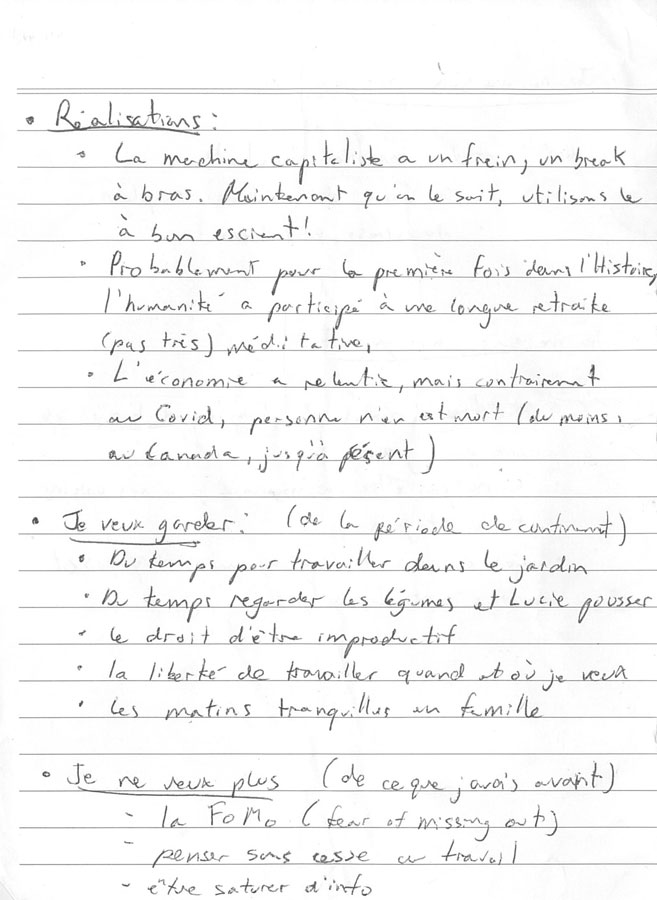 • Réalisations :
• La machine capitaliste a un frein, un break
à bras. Maintenant qu'on le sait, utilisons le
à bon escient!
• Probablement pour la première fois dans l'Histoire,
l'humanité a participé à une longue retraite
(pas très) méditative.
• L'économie a relentie, mais contrairement
au Covid, personne n'en est mort (du moins,
au Canada, jusqu'à présent)
• Je veux garder : (de la période de confinement)
• Du temps pour travailler dans le jardin
• Du temps regarder les légumes et Lucie pousser
• le droit d'être improductif
• la liberté de travailler quand et où je veux
• Les matins tranquilles en famille
• Je ne veux plus (de ce que j'avais avant)
- la FoMo (fear of missing out)
- penser sans cesse au travail
- être saturer d'info